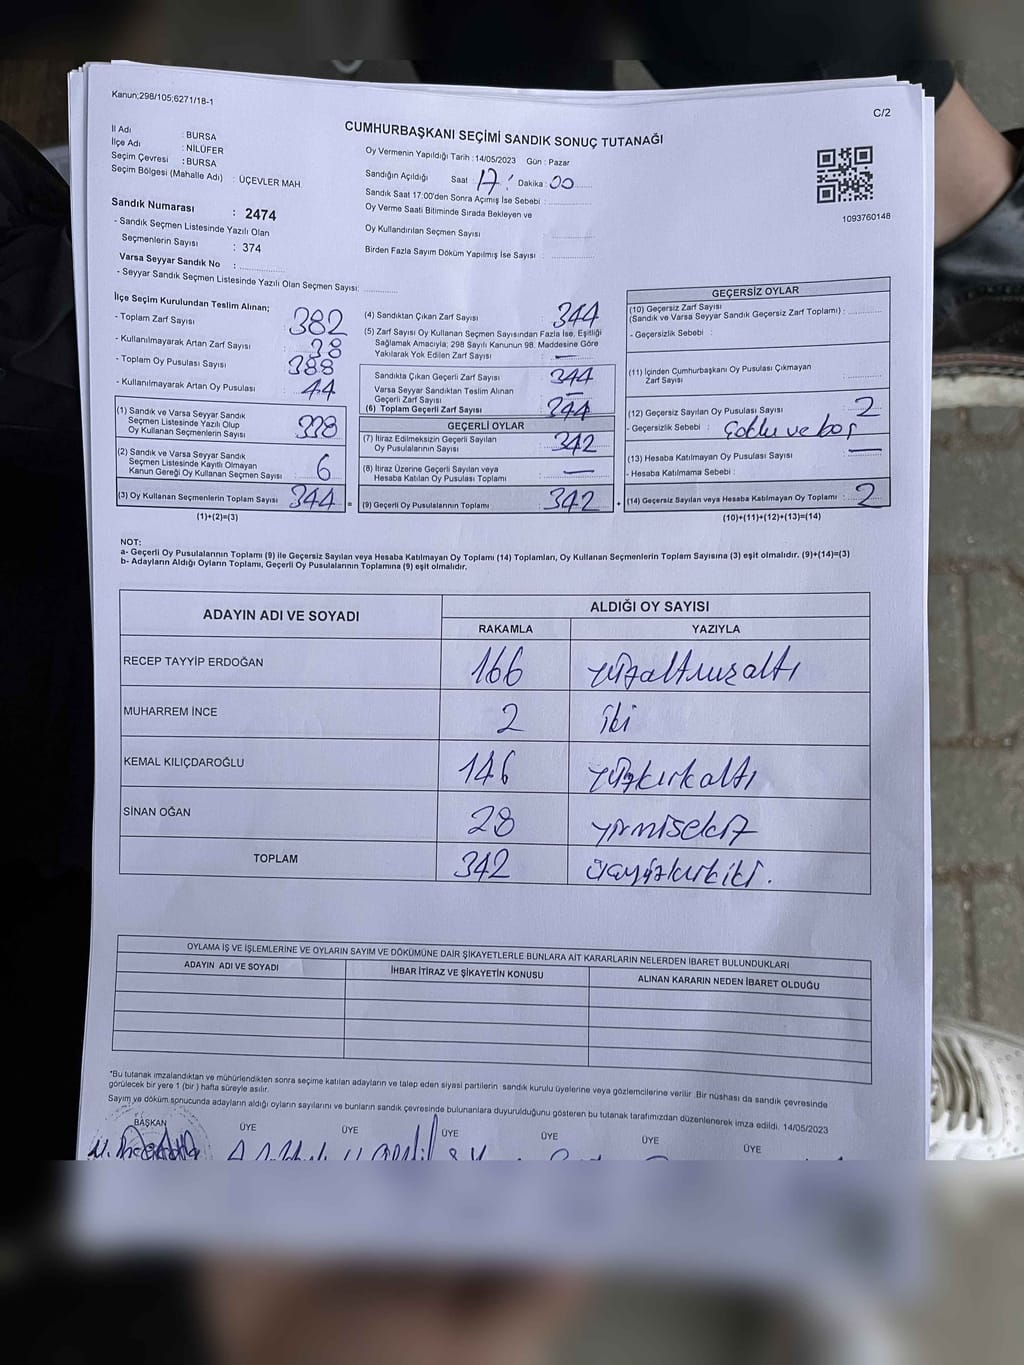 Kanun;298/105;6271/18-1
C/2
CUMHURBAŞKANI SEÇİMİ SANDIK SONUÇ TUTANAĞI
İl Adı : BURSA
İlçe Adı : NİLÜFER
Seçim Çevresi : BURSA
Seçim Bölgesi (Mahalle Adı) : ÜÇEVLER MAH
Sandık Numarası : 2474
- Sandık Seçmen Listesinde Yazılı Olan
Seçmenlerin Sayısı : 374
Varsa Seyyar Sandık No : ..............
- Seyyar Sandık Seçmen Listesinde Yazılı Olan Seçmen Sayısı: ...........
Oy Vermenin Yapıldığı Tarih : 14/05/2023 Gün : Pazar
Sandığın Açıldığı Saat : 17: Dakika : 00
Sandık Saat 17:00'den Sonra Açımış İse Sebebi : ..............
Oy Verme Saati Bitiminde Sırada Bekleyen ve
Oy Kullandırılan Seçmen Sayısı ..............
Birden Fazla Sayım Döküm Yapılmış İse Sayısı : ..............
1093760148
İlçe Seçim Kurulundan Teslim Alınan;
- Toplam Zarf Sayısı : 382
- Kullanılmayarak Artan Zarf Sayısı : 38
- Toplam Oy Pusulası Sayısı : 388
- Kullanılmayarak Artan Oy Pusulası : 44
(1) Sandık ve Varsa Seyyar Sandık
Seçmen Listesinde Yazılı Olup
Oy Kullanan Seçmenlerin Sayısı : 338
(2) Sandık ve Varsa Seyyar Sandık
Seçmen Listesinde Kayıtlı Olmayan
Kanun Gereği Oy Kullanan Seçmen Sayısı : 6
(3) Oy Kullanan Seçmenlerin Toplam Sayısı : 344 =
(1)+(2)=(3)
(4) Sandıktan Çıkan Zarf Sayısı : 344
(5) Zarf Sayısı Oy Kullanan Seçmen Sayısından Fazla İse, Eşitliği
Sağlamak Amacıyla; 298 Sayılı Kanunun 98. Maddesine Göre
Yakılarak Yok Edilen Zarf Sayısı : —
Sandıkta Çıkan Geçerli Zarf Sayısı : 344
Varsa Seyyar Sandıktan Teslim Alınan
Geçerli Zarf Sayısı : —
(6) Toplam Geçerli Zarf Sayısı : 344
GEÇERLİ OYLAR
(7) İtiraz Edilmeksizin Geçerli Sayılan
Oy Pusulalarının Sayısı : 342
(8) İtiraz Üzerine Geçerli Sayılan veya
Hesaba Katılan Oy Pusulası Toplamı : —
(9) Geçerli Oy Pusulalarının Toplamı : 342 +
GEÇERSİZ OYLAR
(10) Geçersiz Zarf Sayısı
(Sandık ve Varsa Seyyar Sandık Geçersiz Zarf Toplamı) : ..........
- Geçersizlik Sebebi :
(11) İçinden Cumhurbaşkanı Oy Pusulası Çıkmayan
Zarf Sayısı : ..........
(12) Geçersiz Sayılan Oy Pusulası Sayısı : 2
- Geçersizlik Sebebi : Çoklu ve boş
(13) Hesaba Katılmayan Oy Pusulası Sayısı : —
- Hesaba Katılmama Sebebi :
(14) Geçersiz Sayılan veya Hesaba Katılmayan Oy Toplamı : 2
(10)+(11)+(12)+(13)=(14)
NOT:
a- Geçerli Oy Pusulalarının Toplamı (9) ile Geçersiz Sayılan veya Hesaba Katılmayan Oy Toplamı (14) Toplamları, Oy Kullanan Seçmenlerin Toplam Sayısına (3) eşit olmalıdır. (9)+(14)=(3)
b- Adayların Aldığı Oyların Toplamı, Geçerli Oy Pusulalarının Toplamına (9) eşit olmalıdır.
ADAYIN ADI VE SOYADI ALDIĞI OY SAYISI
RAKAMLA YAZIYLA
RECEP TAYYİP ERDOĞAN 166 yüzaltmışaltı
MUHARREM İNCE 2 iki
KEMAL KILIÇDAROĞLU 146 yüzkırkaltı
SİNAN OĞAN 28 yirmisekiz
TOPLAM 342 üçyüzkırkiki.
OYLAMA İŞ VE İŞLEMLERİNE VE OYLARIN SAYIM VE DÖKÜMÜNE DAİR ŞİKAYETLERLE BUNLARA AİT KARARLARIN NELERDEN İBARET BULUNDUKLARI
ADAYIN ADI VE SOYADI İHBAR İTİRAZ VE ŞİKAYETİN KONUSU ALINAN KARARIN NEDEN İBARET OLDUĞU
*Bu tutanak imzalandıktan ve mühürlendikten sonra seçime katılan adayların ve talep eden siyasi partilerin sandık kurulu üyelerine veya gözlemcilerine verilir. Bir nüshası da sandık çevresinde
görülecek bir yere 1 (bir ) hafta süreyle asılır.
Sayım ve döküm sonucunda adayların aldığı oyların sayılarını ve bunların sandık çevresinde bulunanlara duyurulduğunu gösteren bu tutanak tarafımızdan düzenlenerek imza edildi. 14/05/2023
BAŞKAN ÜYE ÜYE ÜYE ÜYE ÜYE ÜYE